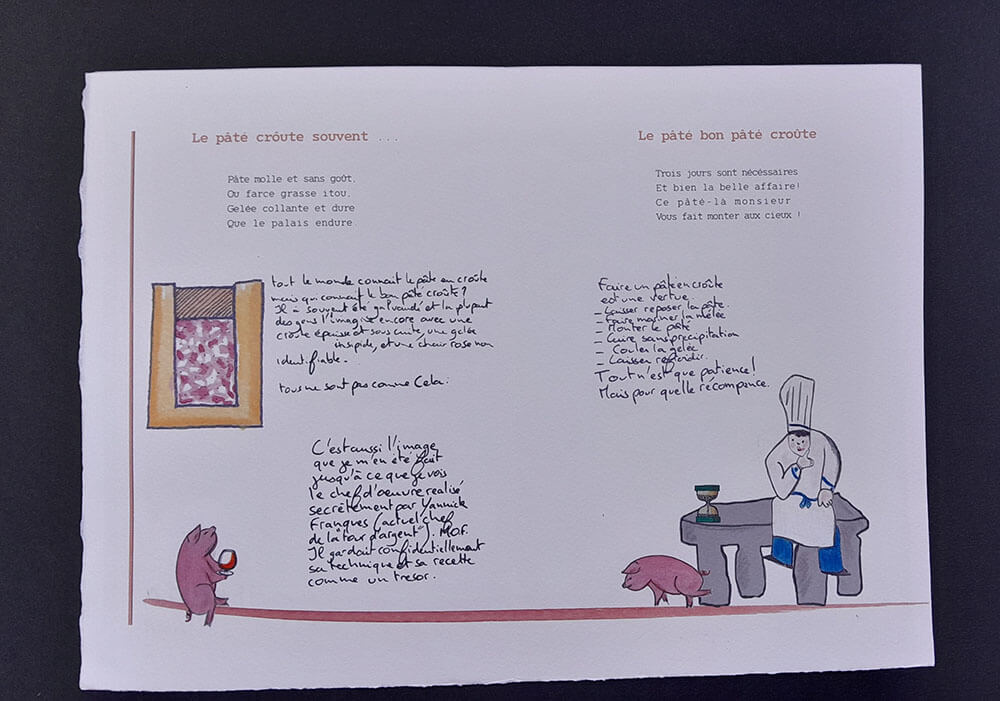 Le pâté crôute souvent ...
Pâte molle et sans goût,
Ou farce grasse itou,
Gelée collante et dure
Que le palais endure.
tout le monde connait le pâte en croûte
mais qui connait le bon pâté croûte?
Il à souvent été galvaudé et la plupart
des gens l'imagine encore avec une
croûte épaisse et sous cuite, une gelée
insipide, et une chair rose non
identifiable.
tous ne sont pas comme Cela.
C'est aussi l'image
que je m'en été fait
jusqu'à ce que je vois
le chef d'oeuvre realisé
secrètement par Yannick
Franques (actuel chef
de la tour d'argent"). M.O.F.
Il gardait confidentiellement
sa technique et sa recette
comme un tresor.
Le pâté bon pâté croûte
Trois jours sont nécéssaires
Et bien la belle affaire!
Ce pâté-là monsieur
Vous fait monter aux cieux !
Faire un pâté en croûte
est une vertue
- Laisser reposer la pâte.
- Faire mariner la mêlée
- Monter le pâté
- Cuire sans précipitation
- Couler la gelée
- Laisser refroidir.
Tout n'est que patience!
Mais pour quelle récompance.